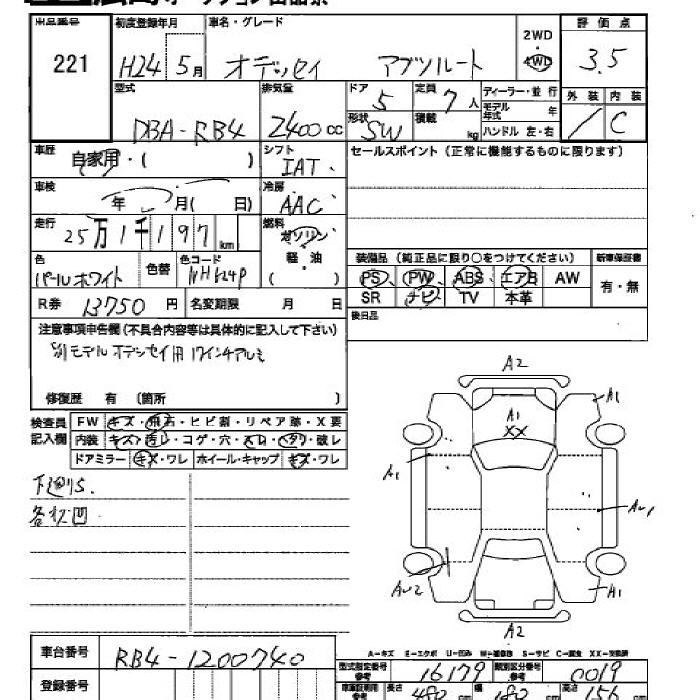 出品番号 初度登録年月 車名・グレード 評価点
221 H24 5月 オデッセイ アブソルート 2WD・4WD 3.5
型式 排気量 ドア 5 定員 7人 ディーラー・並行 外装 内装
DBA-RB4 2400cc 形状 SW 積載 kg モデル年式 年 ハンドル 左・右 / C
車歴 自家用・( ) シフト IAT セールスポイント (正常に機能するものに限ります)
車検 年 月( 日) 冷房 AAC
走行 25万1千197km 燃料 ガソリン 軽油 ( )
色 パールホワイト 色替 色コード NH624P
装備品 (純正品に限り○をつけてください) 新車保証書
PS PW ABS エアB AW 有・無
SR ナビ TV 本革
R券 13750円 名変期限 月 日 後日品
注意事項申告欄(不具合内容等は具体的に記入して下さい)
モデル オデッセイ用 17インチアルミ
修復歴 有 〔箇所 〕
検査員記入欄 FW キズ・飛石・ヒビ割・リペア跡・X要
内装 キズ・汚レ・コゲ・穴・スレ・ヘタリ・破レ
ドアミラー キズ・ワレ ホイール・キャップ キズ・ワレ
下廻りS.
各松凹
A2
A1 A1
XX
A1
AU1
AU2 A1
A2
A-キズ E-エクボ U-凹み W-補修跡 S-サビ C-腐食 XX-交換済
車台番号 RB4-1200740 型式指定番号 参考 16179 類別区分番号 参考 0019
登録番号 車庫証明用 参考 長さ 480cm 幅 180cm 高さ 156cm